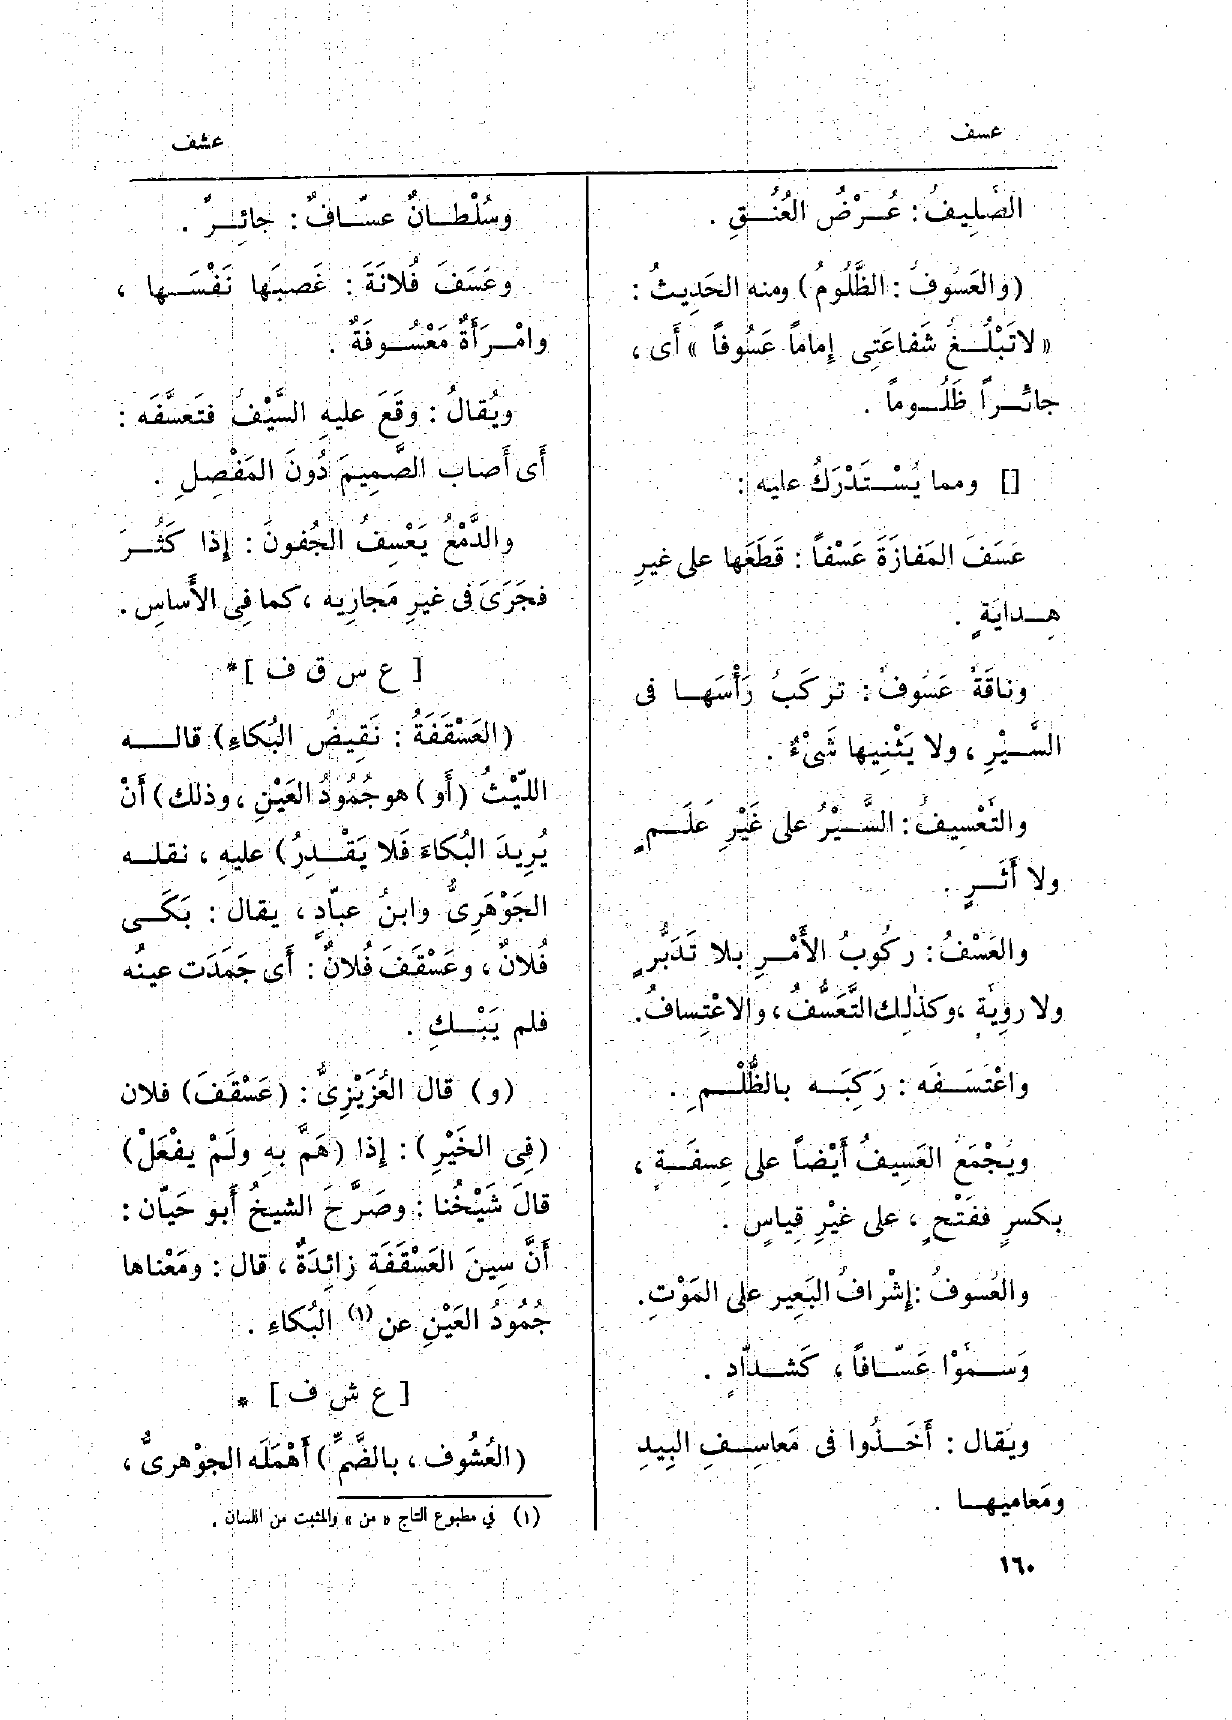 عسف
عشف
الصَّلِيفُ: عُرْضُ العُنُقِ .
(والعَسُوفُ: الظَّلُومُ) ومنه الحَدِيثُ:
«لاتَبْلُغُ شَفاعَتِى إِماماً عَسُوفاً» أى ،
جائراً ظَلُوماً .
[] ومما يُسْتَدْرَكُ عليه :
عَسَفَ المَفازَةَ عَسْفاً : قَطَعَها على غيرِ
هِدايَةٍ .
وناقَةٌ عَسُوفٌ : تركَبُ رَأْسَها فى
السَّيْرِ ، ولا يَثْنِيها شَىْءٌ .
والتَّعْسِيفُ : السَّيْرُ على غَيْرِ عَلَمٍ
ولا أَثَرٍ .
والعَسْفُ : ركُوبُ الأَمْرِ بلا تَدَبُّرٍ
ولا رويَّةٍ ، وكذٰلِك التَّعَسُّفُ ، والاعْتِسافُ.
واعْتَسَفَه : رَكِبَه بالظُّلْمِ .
ويُجْمَعُ العَسِيفُ أَيْضاً على عِسفَةٍ ،
بكسرٍ ففَتْحٍ ، على غيْرِ قِياسٍ .
والعُسوفُ : إِشْرافُ البَعِيرِ على المَوْتِ.
وَسمَّوْا عَسّافاً ، كَشدّادٍ .
ويَقال : أَخَذُوا فى مَعاسِفِ البِيدِ
ومَعامِيها .
وسُلْطانٌ عسّافٌ : جائِرٌ .
وعَسَفَ فُلانَةَ : غَصبَها نَفْسَها ،
وامْرَأَةٌ مَعْسُوفَةٌ .
ويُقالُ : وقَعَ عليهِ السَّيْفُ فتَعسَّفَه :
أى أَصابَ الصَّمِيمَ دُونَ المَفْصِلِ .
والدَّمْعُ يَعْسِفُ الجُفونَ : إِذا كَثُرَ
فجَرَىَ فى غيرِ مَجارِيه ، كما فِى الأَساسِ .
[ ع س ق ف ] *
(العَسْقَفَةُ : نَقِيضُ البُكاءِ) قاله
اللَّيْثُ (أَو) هو جُمُودُ العَيْنِ ، وذلك) أَنْ
يُرِيدَ البُكاءَ فَلا يَقْدِرُ) عليهِ ، نقله
الجَوْهَرِىُّ وابنُ عبّادٍ ، يقال : بَكَى
فُلانٌ ، وعَسْقَفَ فُلانٌ : أَى جَمَدَت عينُه
فلم يَبْكِ .
(و) قال العُزَيْزِىُّ : (عَسْقَفَ) فلان
(فِى الخَيْرِ) : إِذا (هَمَّ بهِ ولَمْ يفْعَلْ)
قالَ شَيْخُنا : وصَرَّحَ الشيخُ أَبو حَيّان :
أَنَّ سِينَ العَسْقَفَةِ زائِدَةٌ ، قال : ومَعْناها
جُمُودُ العَيْنِ عن (١) البُكاءِ .
[ ع ش ف ] *
(العُشُوف ، بالضَّمِّ) أَهْمَلَه الجوْهرىُّ ،
(١) في مطبوع التاج « من » والمثبت من اللسان .
١٦٠